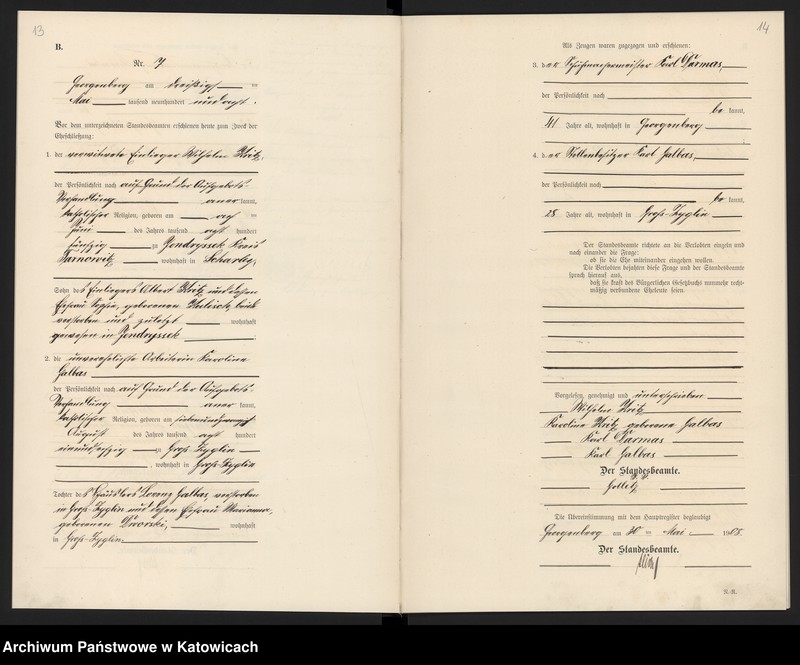 13
B.
Nr. 7
Georgenberg am dreißigsten
Mai tausend neunhundert und acht.
Vor dem unterzeichneten Standesbeamten erschienen heute zum Zweck der
Eheschließung:
1. der verwitwete Einlieger Wilhelm
der Persönlichkeit nach auf Grund der Aufgebots-
Verhandlung aner kannt,
katholischer Religion, geboren am acht
Juni des Jahres tausend acht hundert
fünfzig zu Jendryssek Kreis
Tarnowitz, wohnhaft in Scharley,
Sohn des Einliegers Albert und dessen
Ehefrau geborenen beide
verstorben und zuletzt wohnhaft
gewesen in Jendryssek.
2. die unverehelichte Arbeiterin Karoline
Galbas
der Persönlichkeit nach auf Grund der Aufgebots-
Verhandlung aner kannt,
katholischer Religion, geboren am siebenundzwanzig
August des Jahres tausend acht hundert
einundsechzig zu Groß-Zyglin
, wohnhaft in Groß-Zyglin
Tochter des Häuslers Galbas, verstorben
in Groß-Zyglin und dessen Ehefrau Marianna,
geborenen Dworski, wohnhaft
in Groß-Zyglin.
14
Als Zeugen waren zugezogen und erschienen:
3. der Schuhmachermeister Karl Parmas,
der Persönlichkeit nach
be kannt,
41 Jahre alt, wohnhaft in Georgenberg
4. der Stellenbesitzer Karl Galbas,
der Persönlichkeit nach
be kannt,
28 Jahre alt, wohnhaft in Groß-Zyglin
Der Standesbeamte richtete an die Verlobten einzeln und
nach einander die Frage:
ob sie die Ehe miteinander eingehen wollen.
Die Verlobten bejahten diese Frage und der Standesbeamte
sprach hierauf aus,
daß sie kraft des Bürgerlichen Gesetzbuchs nunmehr recht-
mäßig verbundene Eheleute seien.
Vorgelesen, genehmigt und unterschrieben
Wilhelm
Karoline geborene Galbas
Karl Parmas
Karl Galbas
Der Standesbeamte.
Die Übereinstimmung mit dem Hauptregister beglaubigt
Georgenberg am 30 ten Mai 1908.
Der Standesbeamte.
N.-R.
Archiwum Państwowe w Katowicach